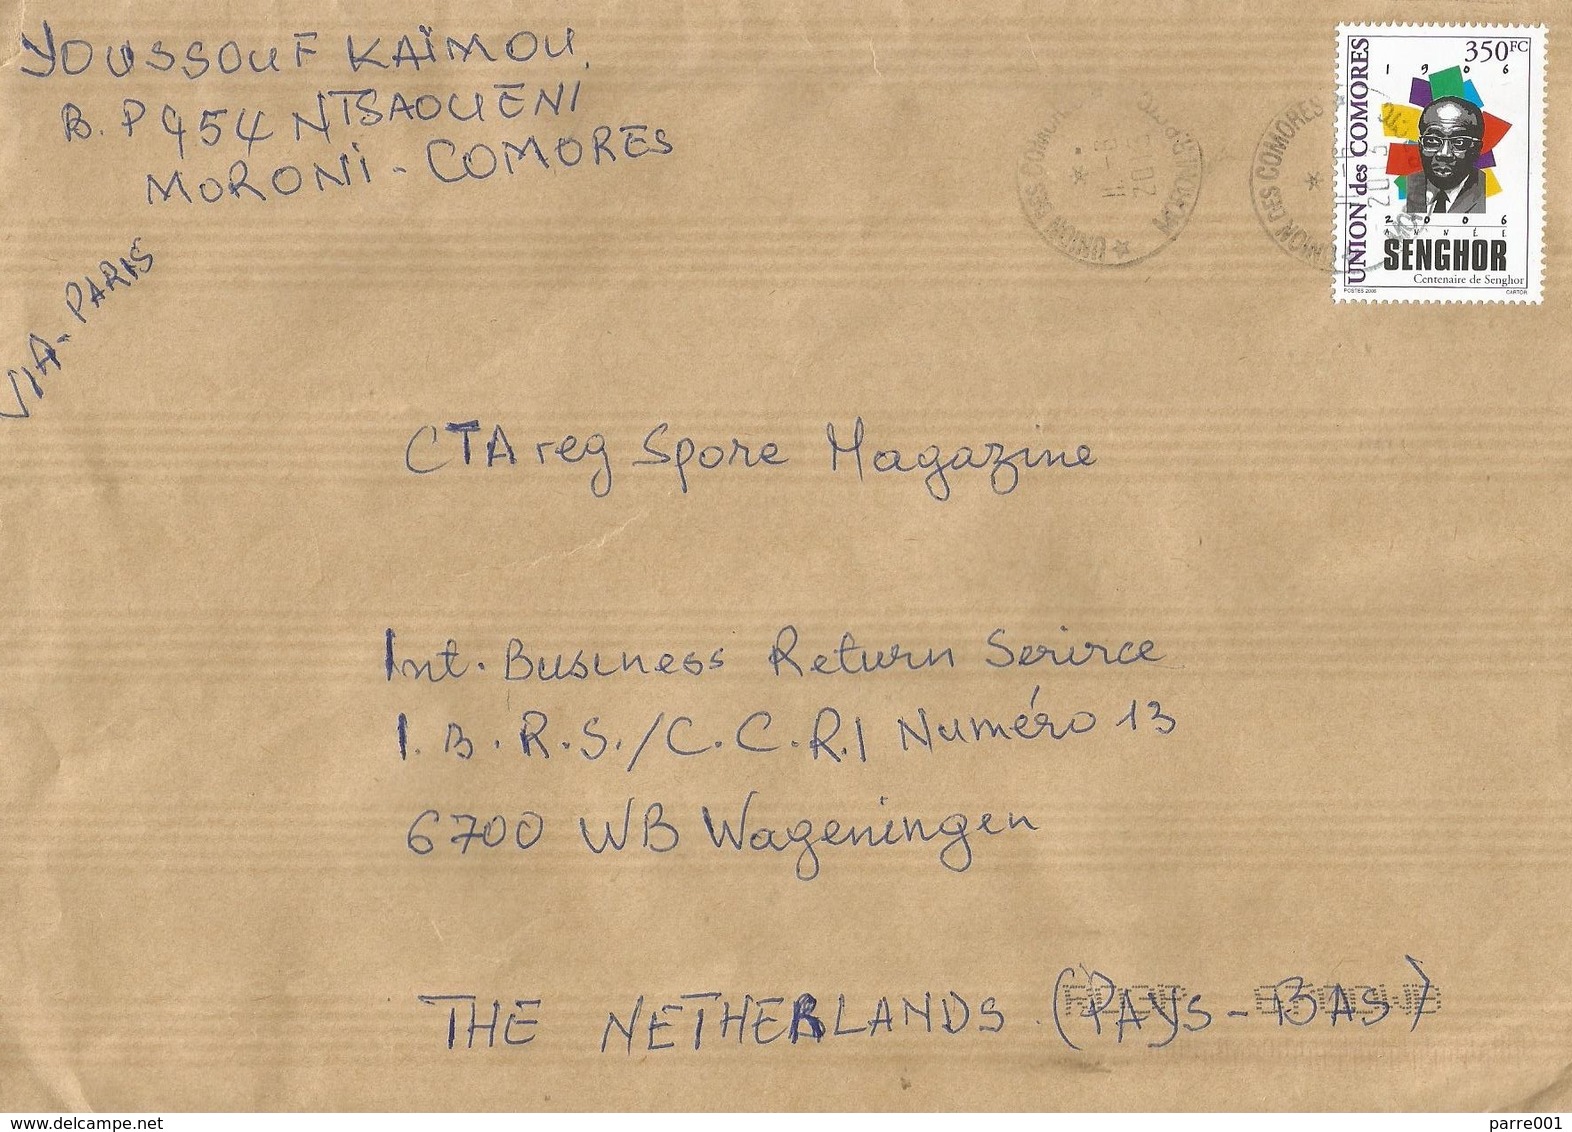 YOUSSOUF KAÏMOU.
B.P 954 NTSAOUENI
MORONI - COMORES
VIA - PARIS
UNION des COMORES
350FC
1906
2006
ANNÉE
SENGHOR
Centenaire de Senghor
POSTES 2006 CARTOR
UNION DES COMORES
11-6
2013
UNION DES COMORES
11-6
2013
CTA reg Spore Magazine
Int. Business Return Serirce
I.B.R.S./C.C.R.I Numéro 13
6700 WB Wageningen
THE NETHERLANDS (PAYS-BAS)
www.delcampe.net
parre001